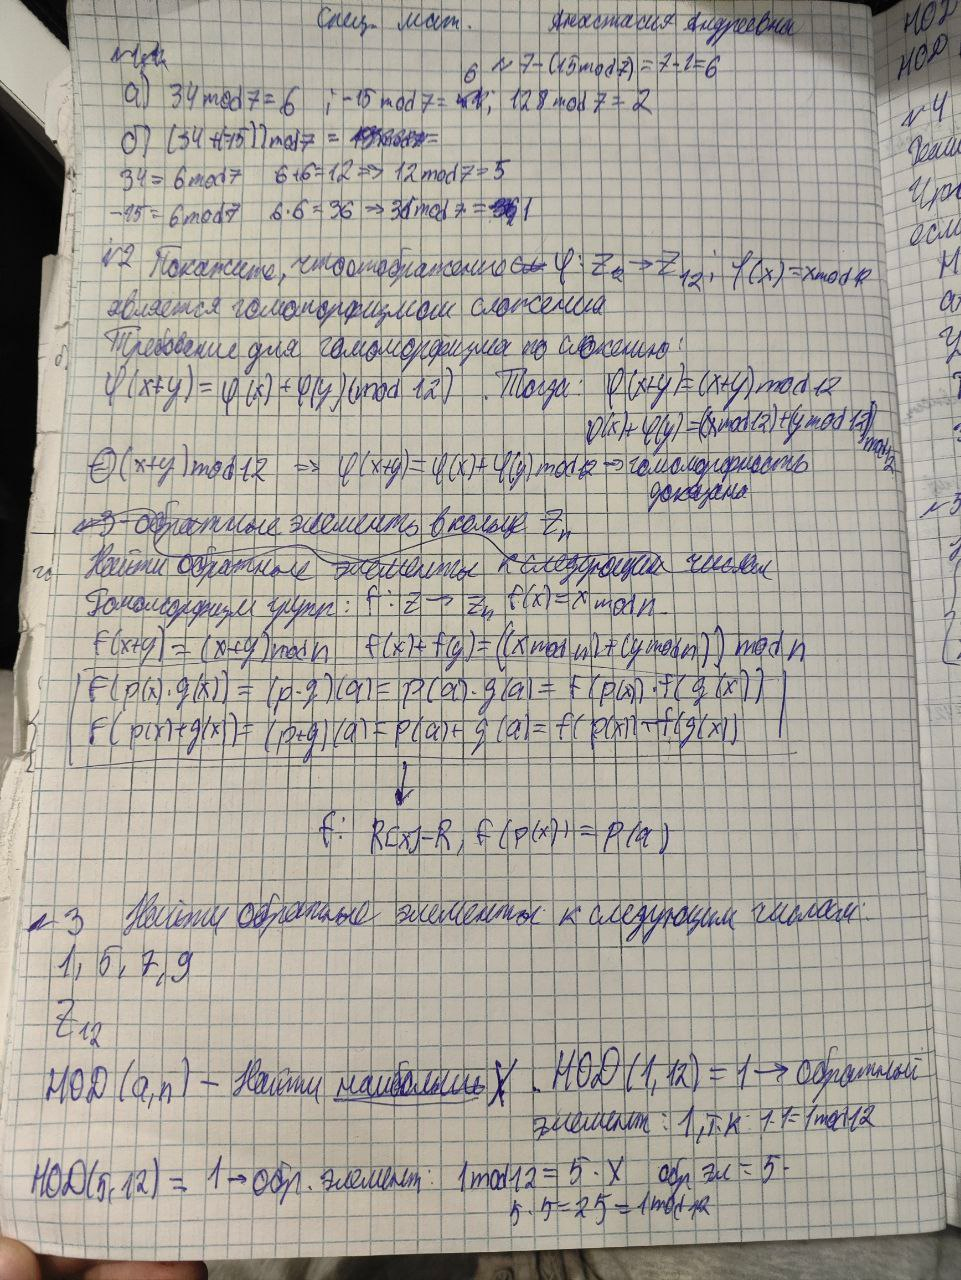 Спец. мат. Анастасия Андреевна
а) 34 mod 7 = 6 ; -15 mod 7 = 6 ; 128 mod 7 = 2
7-(15 mod 7) = 7-1=6
б) (34+(-15)) mod 7 =
34 = 6 mod 7 6+6=12 => 12 mod 7 = 5
-15 = 6 mod 7 6·6 = 36 → 36 mod 7 = 1
№2 Покажите, что отображение φ: Z → Z12; φ(x) = x mod 12
является гомоморфизмом сложения
Требование для гомоморфизма по сложению:
φ(x+y) = φ(x) + φ(y) (mod 12) . Тогда: φ(x+y) = (x+y) mod 12
φ(x)+φ(y) = ((x mod 12)+(y mod 12)) mod 12
(x+y) mod 12 => φ(x+y) = φ(x) + φ(y) mod 12 → гомоморфность
доказана
№3 - обратные элементы в кольце Zn
Найти обратные элементы к следующим числам
Гомоморфизм групп: f: Z → Zn f(x) = x mod n
f(x+y) = (x+y) mod n f(x) + f(y) = ((x mod n) + (y mod n)) mod n
f(p(x)·g(x)) = (p·g)(a) = p(a)·g(a) = f(p(x))·f(g(x))
f(p(x)+g(x)) = (p+g)(a) = p(a)+g(a) = f(p(x))+f(g(x))
f: R[x]→R, f(p(x)) = p(a)
№3 Найти обратные элементы к следующим числам:
1, 5, 7, 9
Z12
НОD (a,n) – Найти наибольш . НОD (1,12) = 1 → обратный
элемент: 1, т.к 1·1=1 mod 12
НОD (5,12) = 1 → обр. элемент: 1 mod 12 = 5 · X обр эл = 5
5·5=25 = 1 mod 12
НОD
НОD
№4